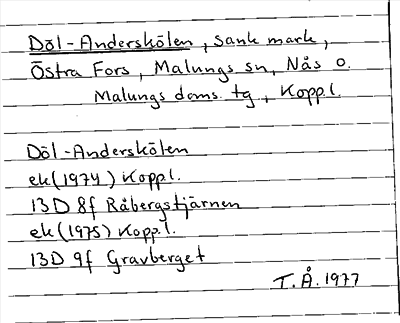 Döl-Anderskölen, sank mark,
Östra Fors, Malungs sn, Nås o.
Malungs doms. tg, Koppl.
Döl-Anderskölen
ek(1974) Koppl.
13D 8f Råbergstjärnen
ek(1975) Koppl.
13D 9f Gravberget
T.Å. 1977